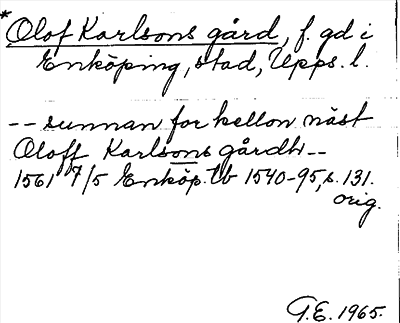 * Olof Karlsons gård, f. gd i
Enköping, stad, Upps. l.
-- sunnan for kellon näst
Oloff Karlsons gårdh --
1561 7/5 Enköp. tb 1540-95, s. 131.
orig.
G.E. 1965.